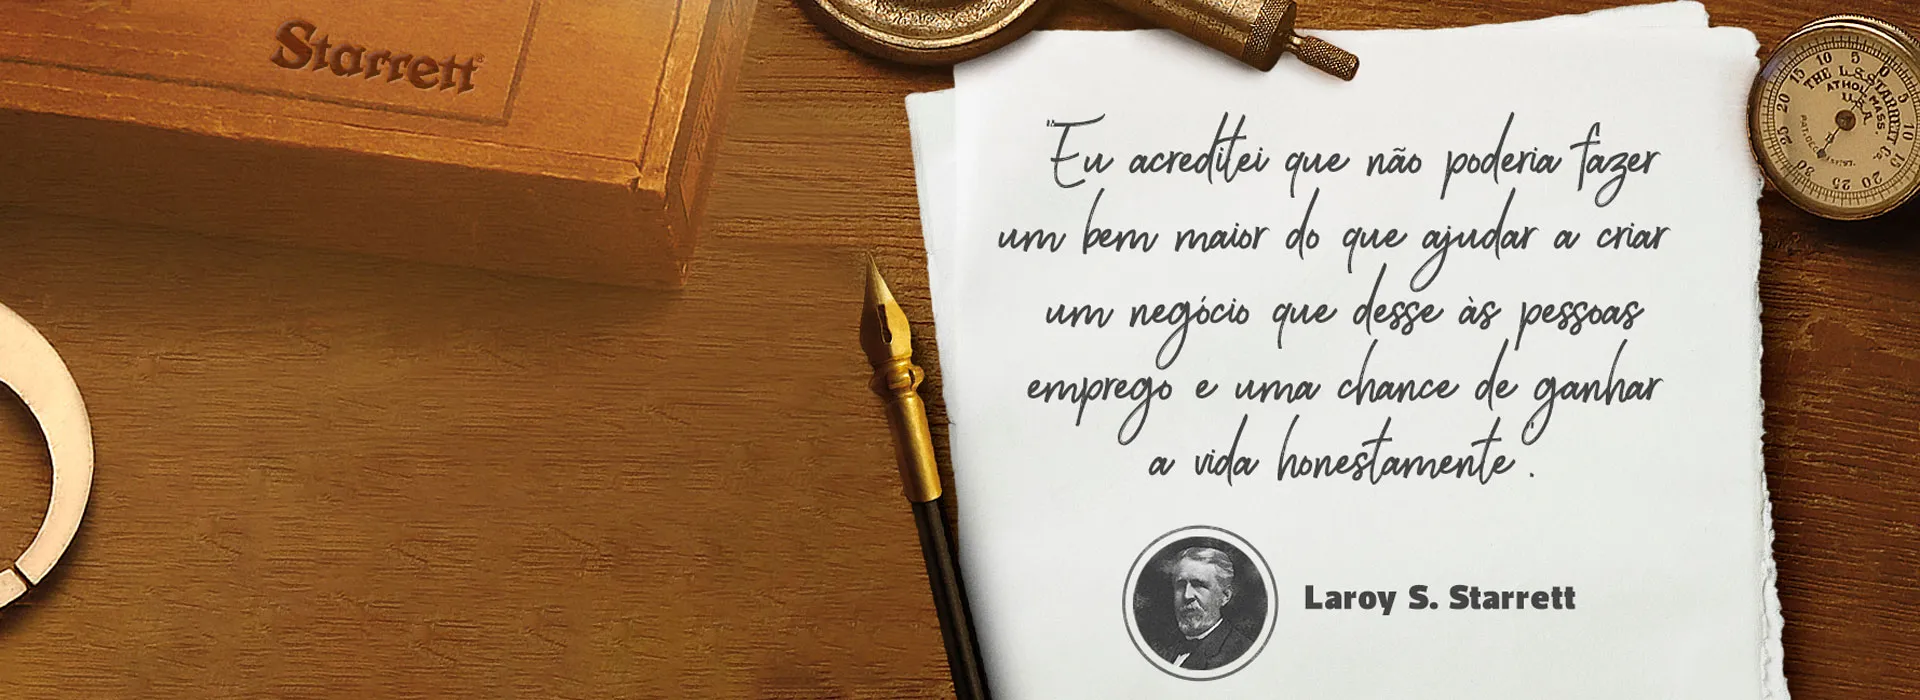 Starrett
"Eu acreditei que não poderia fazer
um bem maior do que ajudar a criar
um negócio que desse às pessoas
emprego e uma chance de ganhar
a vida honestamente".
Laroy S. Starrett
THE L.S. STARRETT Co.
ATHOL, MASS.
U.S.A.
15 10 5 0 5 10 15 20 25 30 25 20